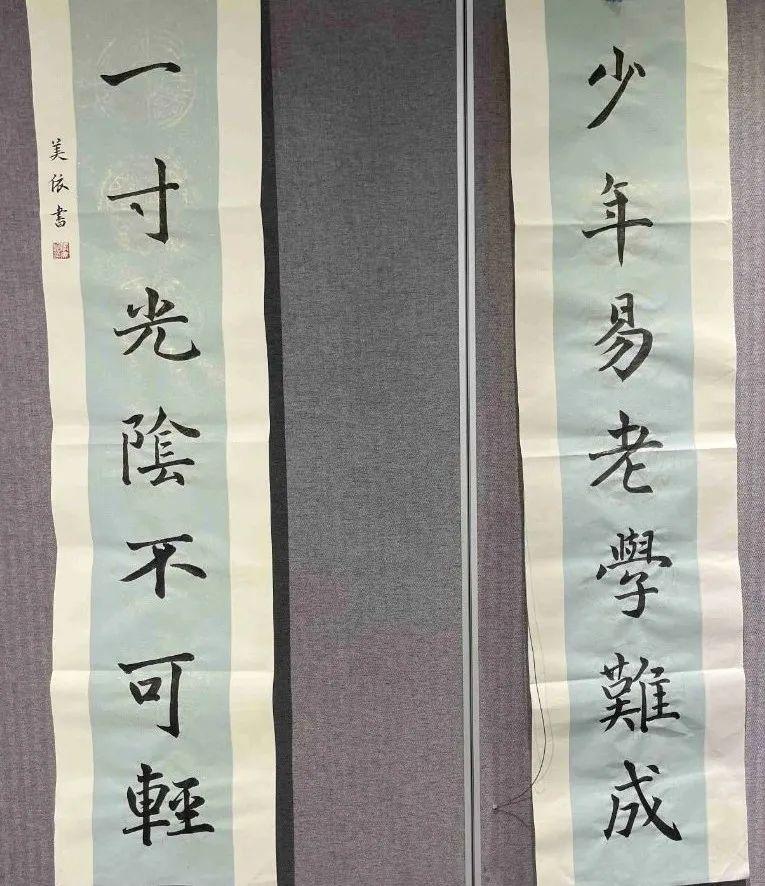 少年易老學難成
一寸光陰不可輕
美依書